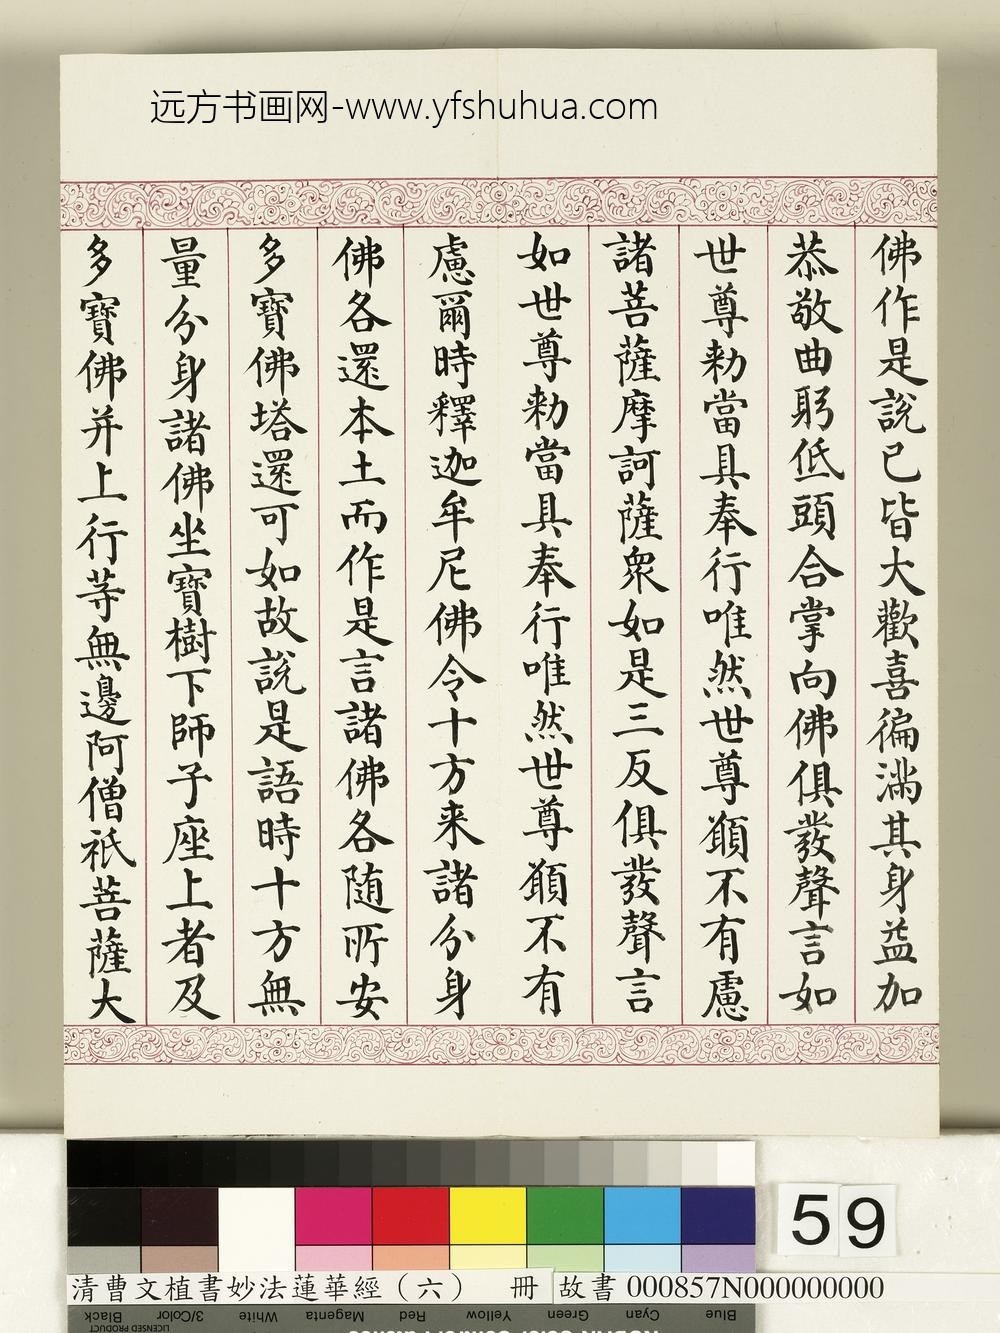 远方书画网-www.yfshuhua.com
佛作是說已皆大歡喜徧滿其身益加
恭敬曲躬低頭合掌向佛俱發聲言如
世尊勅當具奉行唯然世尊願不有慮
諸菩薩摩訶薩衆如是三反俱發聲言
如世尊勅當具奉行唯然世尊願不有
慮爾時釋迦牟尼佛令十方来諸分身
佛各還本土而作是言諸佛各随所安
多寶佛塔還可如故說是語時十方無
量分身諸佛坐寶樹下師子座上者及
多寶佛并上行等無邊阿僧祇菩薩大
59
清曹文植書妙法蓮華經（六） 冊 故書 000857N000000000
Blue Cyan Green Yellow Red Magenta White 3/Color Black
LICENSED PRODUCT